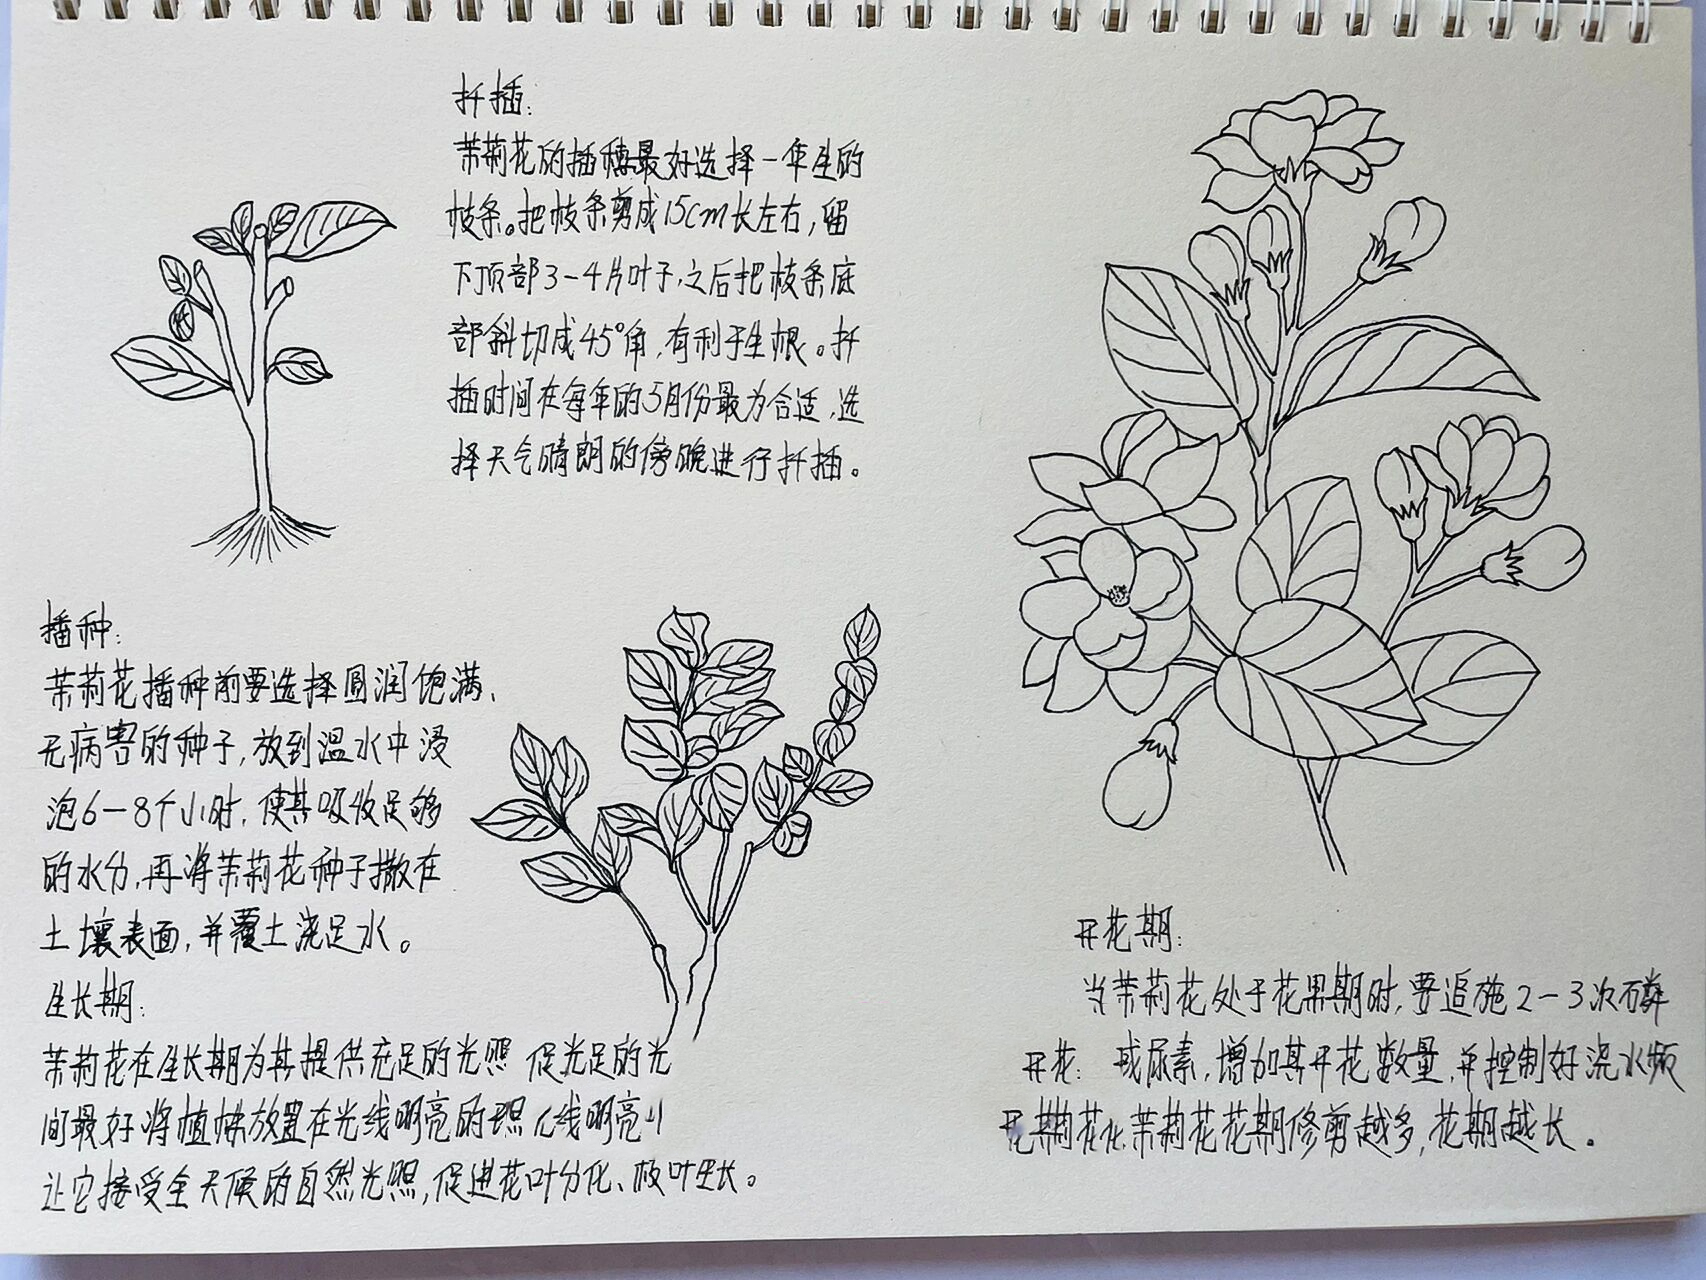 扦插:
茉莉花的插穗最好选择一年生的
枝条。把枝条剪成15cm长左右,留
下顶部3-4片叶子,之后把枝条底
部斜切成45°角,有利于生根。扦
插时间在每年的5月份最为合适,选
择天气晴朗的傍晚进行扦插。
播种:
茉莉花播种前要选择圆润饱满、
无病害的种子,放到温水中浸
泡6-8个小时,使其吸收足够
的水分,再将茉莉花种子撒在
土壤表面,并覆土浇足水。
生长期:
茉莉花在生长期为其提供充足的光照 促光足的光
间最好将植株放置在光线明亮的 线明亮
让它接受全天候的自然光照,促进花叶分化、枝叶生长。
开花期:
当茉莉花处于花果期时,要追施2-3次磷
开花: 或尿素,增加其开花数量,并控制好浇水频
茉莉花花期修剪越多,花期越长。